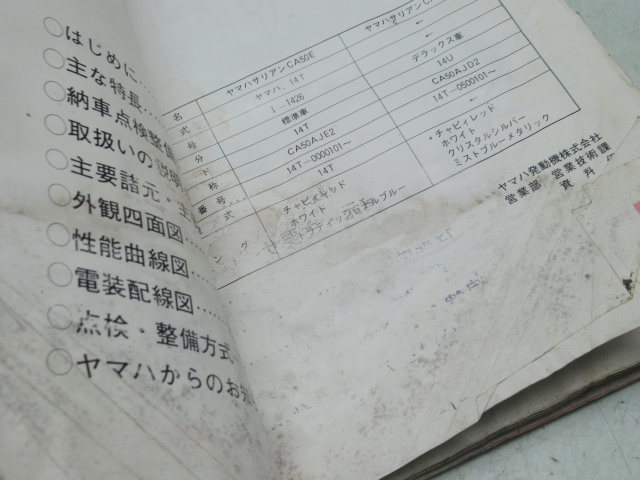 ○はじめに……
○主な特長……
○納車点検整備
○取扱いの説明
○主要諸元・主
○外観四面図……
○性能曲線図……
○電装配線図……
○点検・整備方式
○ヤマハからのお知
名 ヤマハサリアンCA50E ヤマハサリアン
式 ヤマハ、14T ←
号 Ⅰ-1426 ←
分 標準車 デラックス車
ド 14T 14U
称 CA50AJE2 CA50AJD2
番号 14T-0000101~ 14T-0500101~
式 14T ←
チャピィレッド
ホワイト
*チャピィレッド
ホワイト
クリスタルシルバー
ミストブルーメタリック
ング
ヤマハ発動機株式会社
営業部 営業技術課